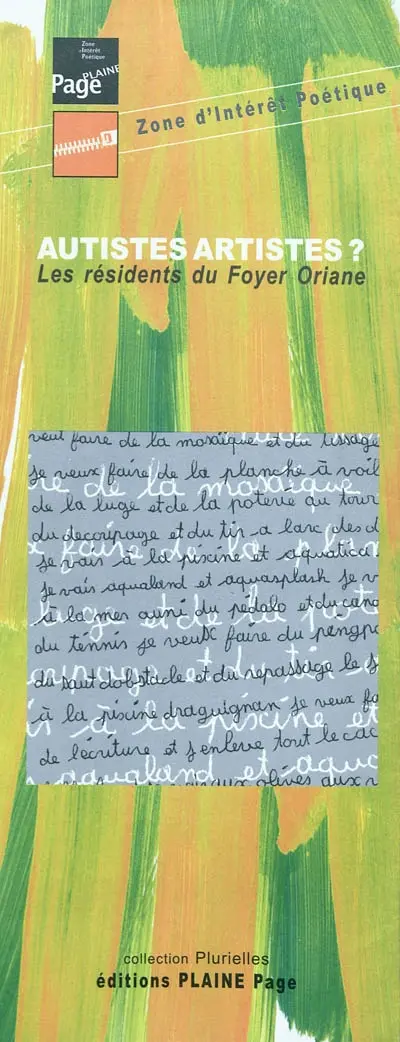 Zone
d'Intérêt
Poétique
PLAINE
Page
Zone d'Intérêt Poétique
AUTISTES ARTISTES ?
Les résidents du Foyer Oriane
veut faire de la mosaïque et du tissage
je veux faire de la planche à voil
re de la mosaïque
de la luge et de la poterie au tour
du decoupage et du tir a larc des d
x faire de la plan
je vais à la piscine et aquatica
je vais aqualand et aquasplash je v
à la mer ausi du pédalo et du cano
luge et de la pote
du tennis je veux faire du pengpo
oupage et du ti
du saut dobstacle et du repassage le j
à la piscine draguignan je veux fa
is à la piscine et
de lécriture et j enleve tout le cac
aqualand et aqua
olives aux
collection Plurielles
éditions PLAINE Page